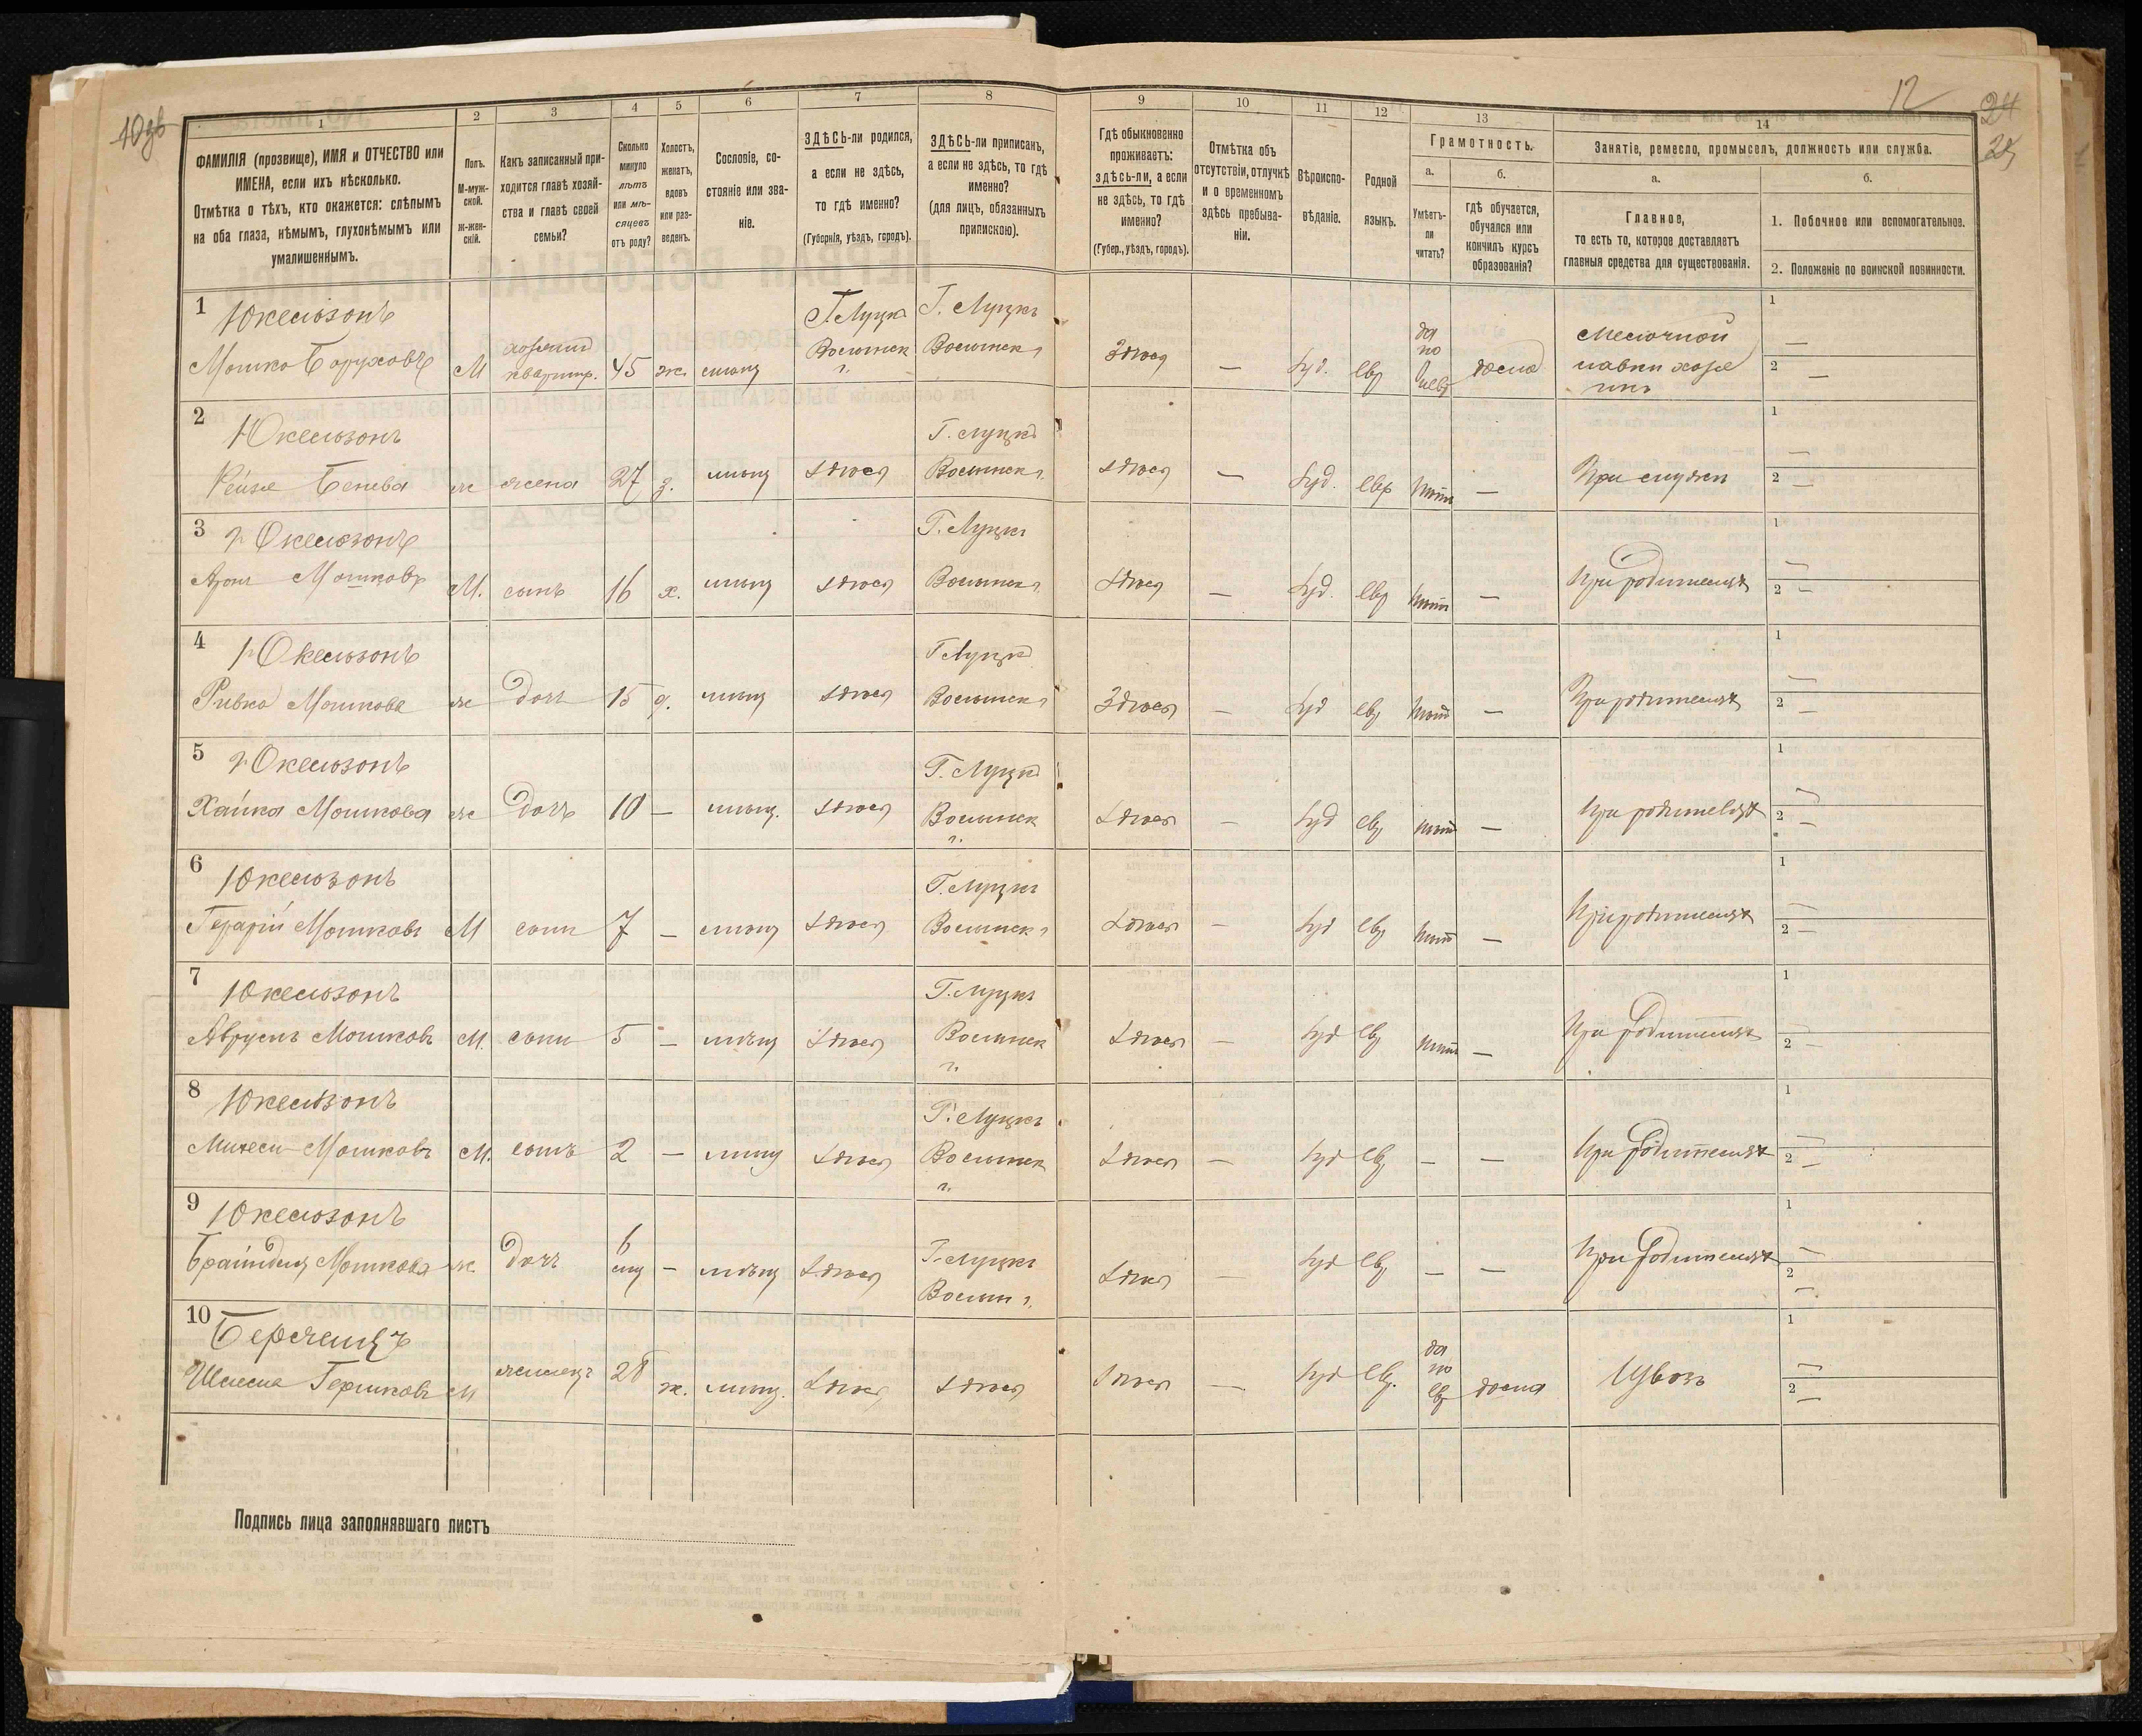 12
24
1
2
3
4
5
6
7
8
9
10
11
12
13
14
ФАМИЛІЯ (прозвище), ИМЯ и ОТЧЕСТВО или
ИМЕНА, если ихъ нѣсколько.
Отмѣтка о тѣхъ, кто окажется: слѣпымъ
на оба глаза, нѣмымъ, глухонѣмымъ или
умалишеннымъ.
Полъ.
М-муж-
ской.
Ж-жен-
скій.
Какъ записанный при-
ходится главѣ хозяй-
ства и главѣ своей
семьи?
Сколько
минуло
лѣтъ
или мѣ-
сяцевъ
отъ роду?
Холостъ,
женатъ,
вдовъ
или раз-
веденъ.
Сословіе, со-
стояніе или зва-
ніе.
ЗДѢСЬ-ли родился,
а если не здѣсь,
то гдѣ именно?
(Губернія, уѣздъ, городъ).
ЗДѢСЬ-ли приписанъ,
а если не здѣсь, то гдѣ
именно?
(для лицъ, обязанныхъ
припискою).
Гдѣ обыкновенно
проживаетъ:
здѣсь-ли, а если
не здѣсь, то гдѣ
именно?
(Губер., уѣздъ, городъ).
Отмѣтка объ
отсутствіи, отлучкѣ
и о временномъ
здѣсь пребыва-
ніи.
Вѣроиспо-
вѣданіе.
Родной
языкъ.
Грамотность.
а.
Умѣетъ-
ли
читать?
б.
гдѣ обучается,
обучался или
кончилъ курсъ
образованія?
Занятіе, ремесло, промыселъ, должность или служба.
а.
Главное,
то есть то, которое доставляетъ
главныя средства для существованія.
б.
1. Побочное или вспомогательное.
2. Положеніе по воинской повинности.
1
Юкельзонъ
Г. Луцка
Г. Луцкъ
Мошко Боруховъ
М
хозяинъ
кварт.
45
ж.
Волынск
г.
Волынск г
Здѣсь
—
Іуд.
евр
да
по
дома
Мелочной
лавки хозя
инъ
1 —
2 —
2
Юкельзонъ
Г. Луцкъ
Рейзя Бенева
ж
жена
27
з.
мѣщ
здѣсь
Волынск г.
здѣсь
—
Іуд.
евр
нѣтъ
—
При мужѣ
1 —
2 —
3
Юкельзонъ
Г. Луцкъ
Аронъ Мошковъ
М.
сынъ
16
х.
мѣщ
здѣсь
Волынск г.
здѣсь
—
Іуд.
евр
нѣтъ
—
При родителяхъ
1 —
2 —
4
Юкельзонъ
Г Луцкъ
Ривка Мошкова
ж
дочь
15
д.
мѣщ
здѣсь
Волынск г
Здѣсь
—
Іуд
евр
нѣтъ
—
При родителяхъ
1 —
2 —
5
Юкельзонъ
Г. Луцкъ
Хайка Мошкова
ж
дочь
10
—
мѣщ.
здѣсь
Волынск
г.
здѣсь
—
Іуд
евр
нѣтъ
—
При родителяхъ
1 —
2 —
6
Юкельзонъ
Г. Луцкъ
Мошковъ
М
сынъ
7
—
мѣщ
здѣсь
Волынск г
здѣсь
—
Іуд
евр
нѣтъ
—
При родителяхъ
1 —
2 —
7
Юкельзонъ
Г. Луцкъ
Аврумъ Мошковъ
М.
сынъ
5
—
мѣщ
здѣсь
Волынск
г.
здѣсь
—
Іуд
евр
нѣтъ
—
При родителяхъ
1 —
2 —
8
Юкельзонъ
Г. Луцкъ
Мошковъ
М.
сынъ
2
—
мѣщ
здѣсь
Волынск
г.
здѣсь
—
Іуд
евр
—
—
При родителяхъ
1 —
2 —
9
Юкельзонъ
Мошкова
ж
дочь
6
—
мѣщ
здѣсь
Г. Луцкъ
Волын г.
здѣсь
—
Іуд
евр
—
—
При родителяхъ
1 —
2 —
10
Гершковъ
М
жилецъ
28
ж.
мѣщ.
здѣсь
здѣсь
здѣсь
—
Іуд
евр.
да
по
евр
дома
Извозъ
1 —
2 —
Подпись лица заполнявшаго листъ